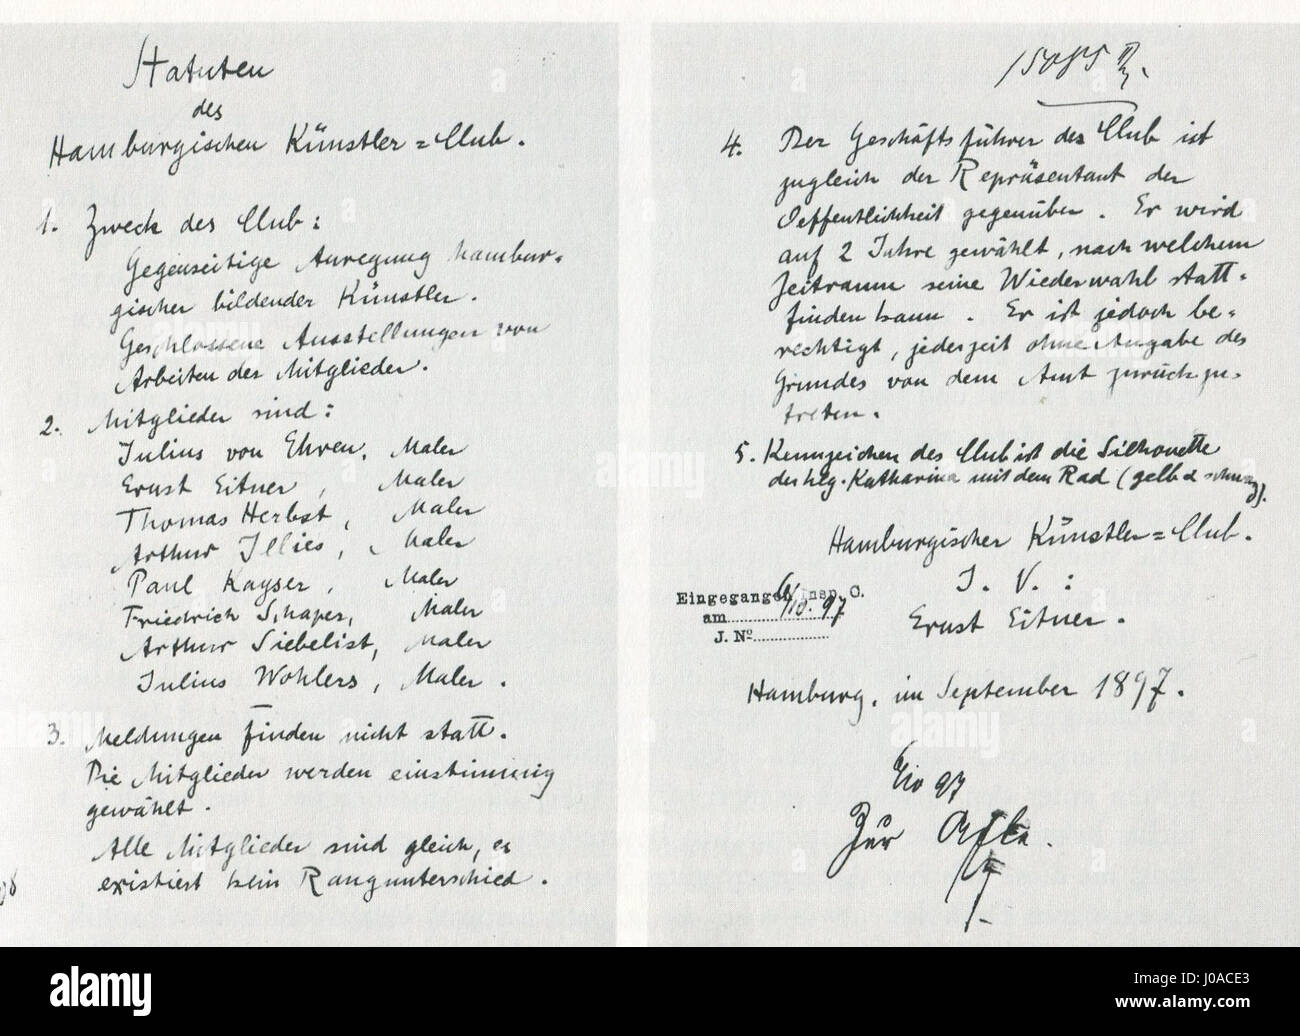 Statuten
des
Hamburgischen Künstler=Club.
1. Zweck des Club:
Gegenseitige Anregung hambur-
gischer bildender Künstler.
Geschlossene Ausstellungen von
Arbeiten der Mitglieder.
2. Mitglieder sind:
Julius von Ehren, Maler
Ernst Eitner, Maler
Thomas Herbst, Maler
Arthur Illies, Maler
Paul Kayser, Maler
Friedrich Schaper, Maler
Arthur Siebelist, Maler
Julius Wohlers, Maler.
3. Meldungen finden nicht statt.
Die Mitglieder werden einstimmig
gewählt.
Alle Mitglieder sind gleich, es
existiert kein Rangunterschied.
15085
4. Der Geschäftsführer des Club ist
zugleich der Repräsentant der
Oeffentlichkeit gegenüber. Er wird
auf 2 Jahre gewählt, nach welchem
Zeitraum seine Wiederwahl statt-
finden kann. Er ist jedoch be-
rechtigt, jederzeit ohne Angabe des
Grundes von dem Amt zurückzu-
treten.
5. Kennzeichen des Club ist die Silhouette
der hlg. Katharina mit dem Rad (gelb & schwarz).
Hamburgischer Künstler=Club.
I. V.:
Ernst Eitner.
Eingegangen Insp. C.
am 6/10. 97
J. No
Hamburg, im September 1897.
97
Zur Acte.
alamy
Image ID: J0ACE3
www.alamy.com